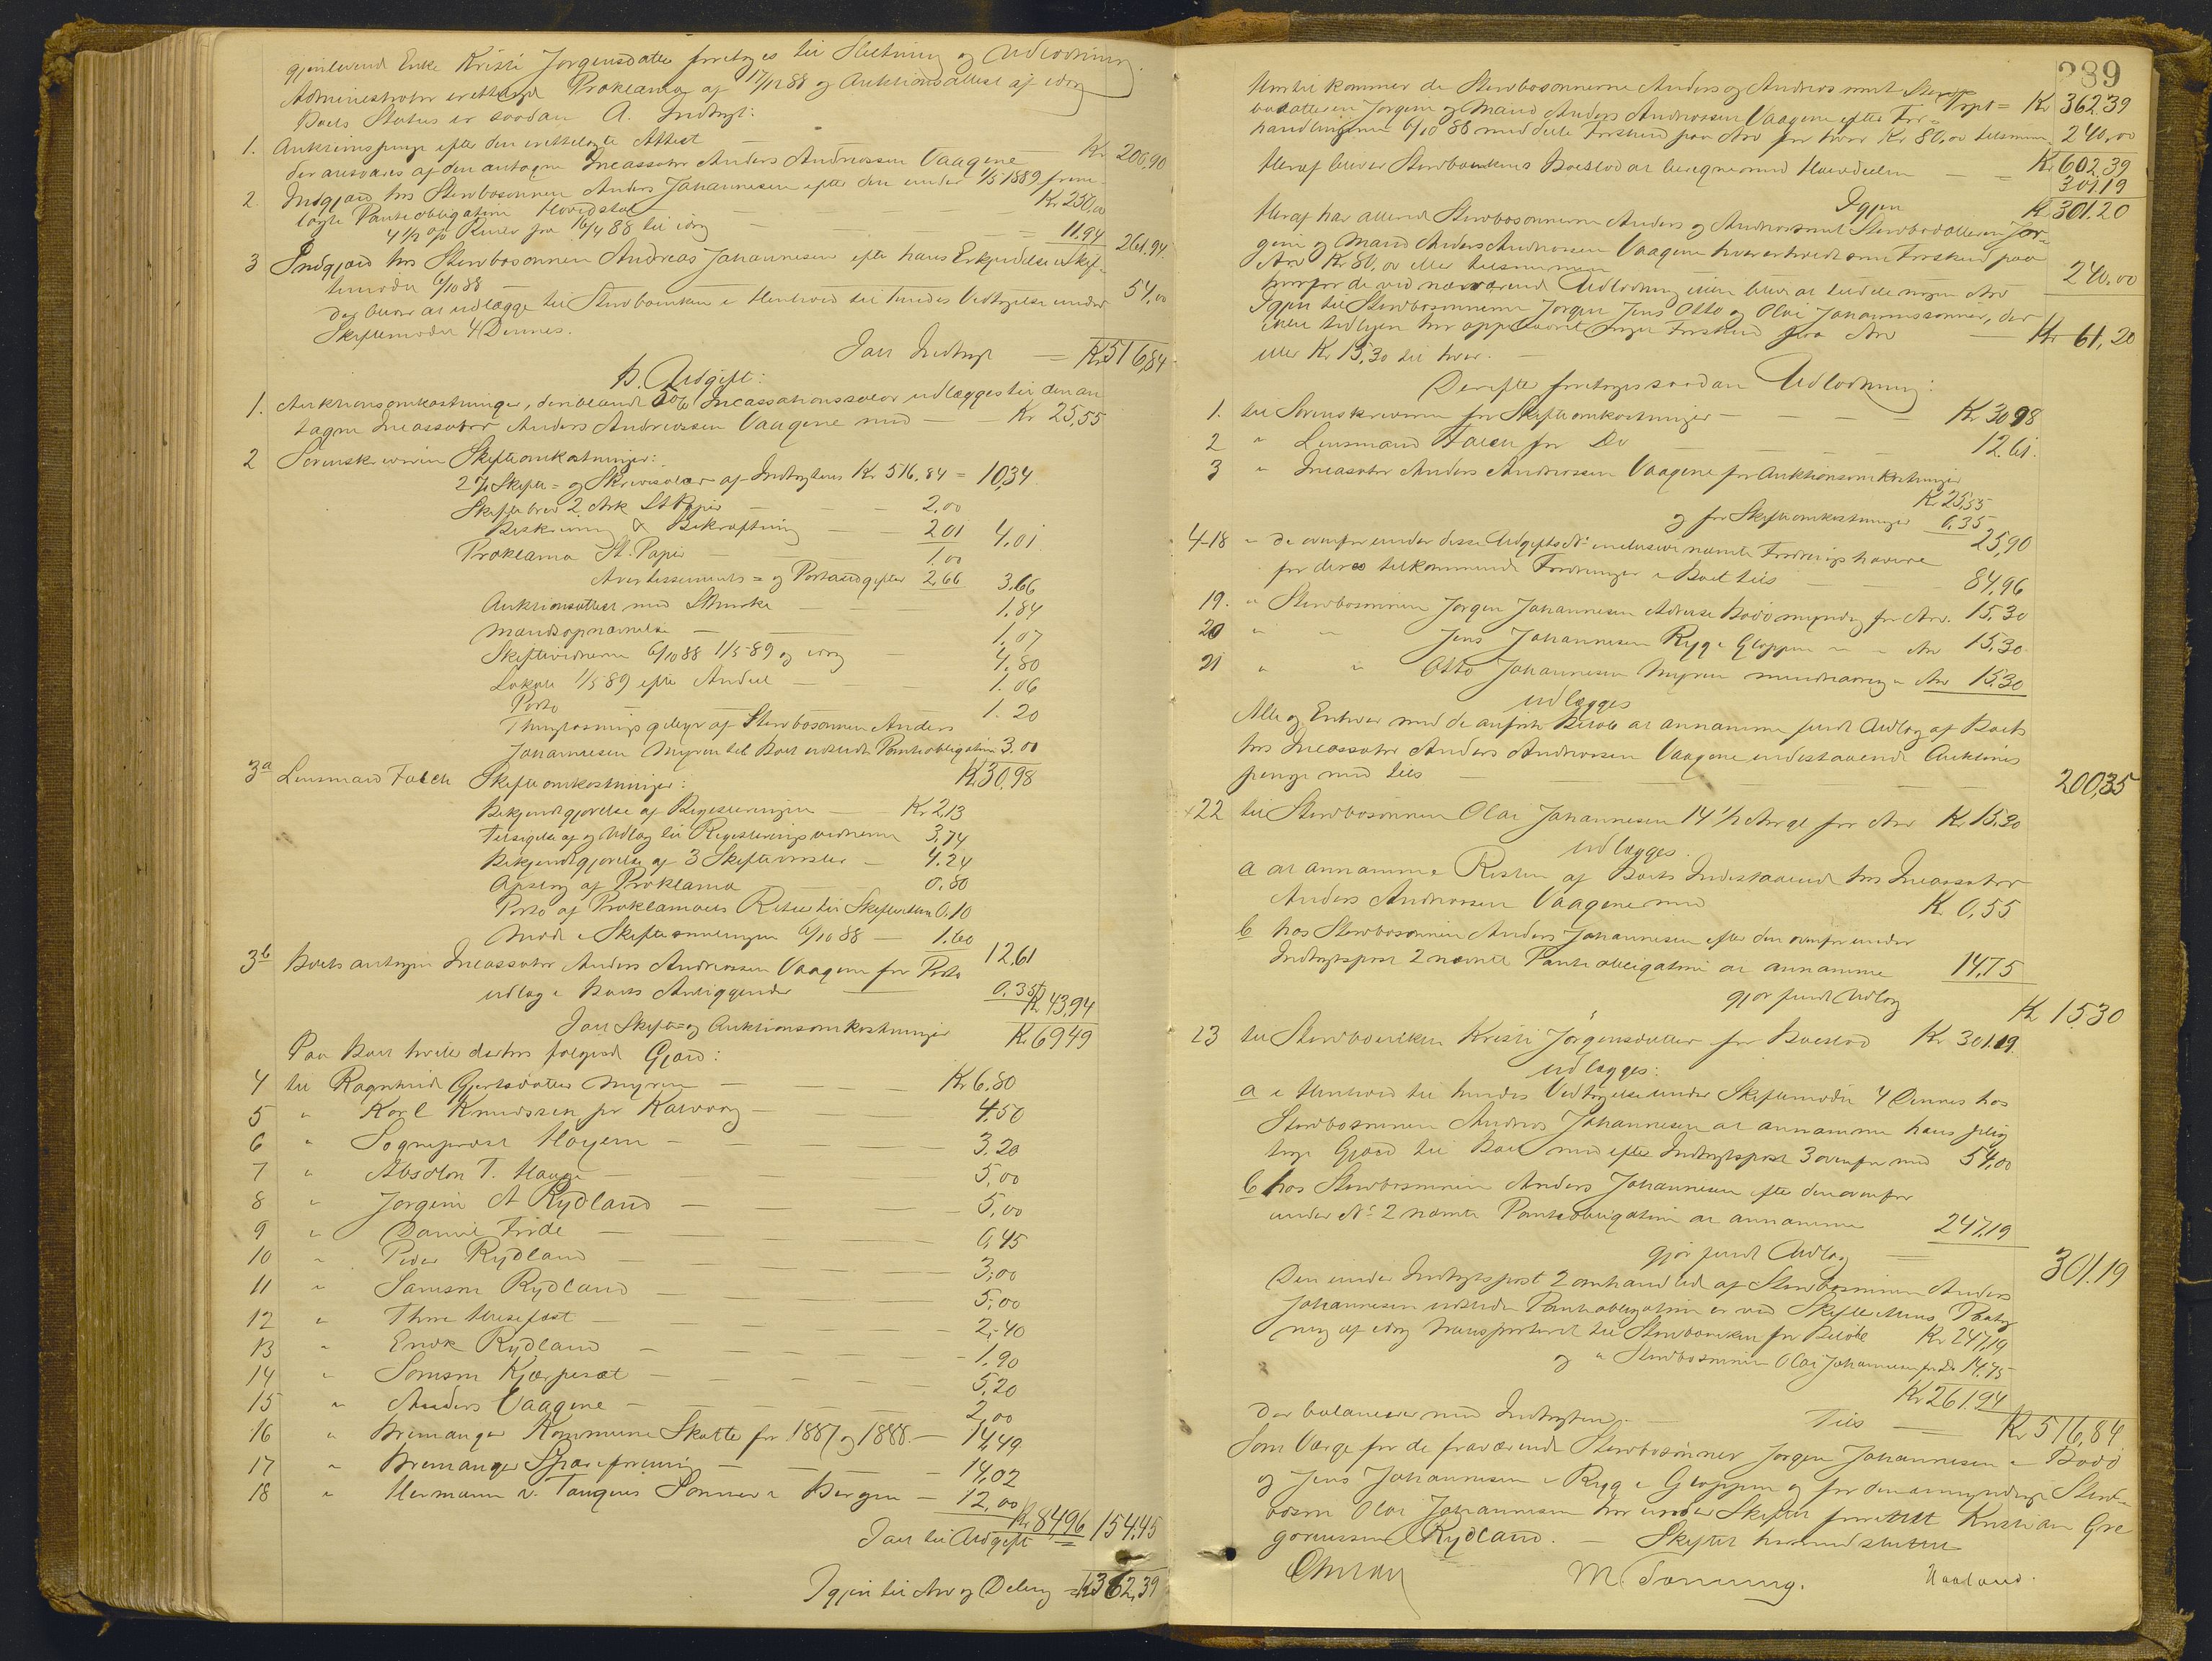 gjenlevende Enke Kristi Jørgensdatter foretoges til Slutning og Udlodning.
Administrator irettelagde Proklama af 17/12 88 og Auktionsattest af idag
Boets Status er saadan A. Indtægt:
1. Auktionspenge efter den irettelagte Attest — Kr 200,90
der ansvares af den antagne Incassator Anders Andreassen Vaagene
2. Indgjæld hos Stervbosønnen Anders Johannesen efter den under 1/5 1889 frem-
lagte Panteobligation Hovedstol — Kr 250,00
4 1/2 % Renter fra 16/4 88 til idag — 11.94 261.94
3 Indgjæld hos Stervbosønnen Andreas Johannesen efter hans Erkjendelse i Skif-
temøde 6/10 88 — 54,00
der bliver at udlægge til Stervboenken i Henhold til hendes Vedtagelse under
Skiftemødet 4 Dennes.
Ialt Indtægt = Kr 516,84
B. Udgift:
1. Auktionsomkostninger, deriblandt 5 % Incassationssalær udlægges til den an
tagne Incassator Anders Andreassen Vaagene med — Kr 25,55
2 Sorenskriveren Skifteomkostninger:
2 % Skifte- og Skriversalær af Indtægtens Kr 516,84 = 10,34
Skiftebrev 2 Ark St Papir — 2,00
Beskrivning & Bekræftning — 2 01 4,01
Proklama St. Papir — 1.00
Avertissements- og Portoudgifter 2,66 3,66
Auktionsattest med — 1,84
Mandsopnævnelse — 1,07
Skiftevidnerne 6/10 88 1/5 89 og idag — 4.80
Lokale 1/5 89 efter Andeel — 1.06
Porto — 1.20
Thinglæsningsgebyr af Stervbosønnen Anders
Johannesen Myren til Boet udstedte Panteobligation 3.00
Kr 30,98
3a Lensmand Falch Skifteomkostninger:
Bekjendtgjørelse af Registreringen — Kr 2,13
Tilsigelse af og Udlæg til Registreringsvidnerne 3,74
Bekjendtgjørelse af 3 Skiftevarsler — 4.24
Opslag af Proklama — 0.80
Porto af Proklamaets Retur til Skifteretten 0.10
Møde i Skiftesamlingen 6/10 88 — 1.60
12,61
3b Boets antagne Incassator Anders Andreassen Vaagene for Porto
udlæg i Boets Anliggender — 0.35
Kr 43,94
Ialt Skifte- og Auktionsomkostninger Kr 69 49
Paa Boet hviler derhos følgende Gjæld:
4 til Ragnhild Gjertsdatter Myren — Kr 6.80
5 " Karl Knudssen pr Kalvaag — 4.50
6 " Sogneprest Høyem — 3.20
7 " Absolon T. Hauge — 5,00
8 " Jørgine A Rydland — 5,00
9 " Daniel Fride — 0,45
10 " Peder Rydland — 3,00
11 " Samson Rydland — 5,00
12 " Thore — 2,40
13 " Enok Rydland — 1.90
14 " Samson — 5,20
15 " Anders Vaagene — 2,00
16 " Bremanger Kommune Skatte for 1887 og 1888 — 14,49
17 " Bremanger Spareforening — 14,02
18 " Hermann v. Tangens Sønner i Bergen — 12,00
Kr 84 96 154,45
Ialt til Udgift
Igjen til Arv og Deling = Kr 362,39
289
Trpt = Kr 362.39
Hertil kommer de Stervbosønnerne Anders og Andreas samt Stervbo
datteren Jørgine og Mand Anders Andreassen Vaagene efter For-
handlingerne 6/10 88 meddelte Forskud paa Arv for hver Kr 80,00 tilsammen 240,00
Kr 602,39
Heraf bliver Stervboenkens Boeslod at beregne med Halvdelen — 301,19
Igjen Kr 301.20
Heraf har allerede Stervbosønnerne Anders og Andreas samt Stervbodatteren Jør-
gine og Mand Anders Andreassen Vaagene hver erholdt som Forskud paa
Arv Kr 80,00 eller tilsammen — 240,00
hvorfor de ved nærværende Udlodning ikke bliver at tildele nogen Arv
Igjen til Stervbosønnerne Jørgen Jens Otto og Olai Johannessønner, der
ikke tidligere har oppebaaret noget Forskud paa Arv — Kr 61,20
eller Kr 15,30 til hver.
Derefter foretoges saadan Udlodning:
1. til Sorenskriveren for Skifteomkostninger — Kr 30 98
2 " Lensmand Falch for Do — 12.61.
3 " Incassator Anders Andreassen Vaagene for Auktionsomkostninger
Kr 25,55
og for Skifteomkostninger 0,35
25,90
4-18 " de ovenfor under disse Udgifts No inclusive nævnte Fordringshavere
for deres tilkommende Fordringer i Boet tils — 84,96
19. " Stervbosønnen Jørgen Johannesen Adresse Bodø myndig for Arv. 15,30
20 " " Jens Johannesen Ryg i Gloppen " " Arv 15,30
21 " " Otto Johannesen Myren mindreaarig " Arv 15,30
udlægges
Alle og Enhver med de anførte Beløb at annamme fuldt Udlæg af Boets
hos Incassator Anders Andreassen Vaagene indestaaende Auktions
penge med tils — 200,35
22 til Stervbosønnen Olai Johannesen 14 1/2 Aar gl for Arv Kr 15,30
udlægges.
a at annamme Resten af Boets Indestaaende hos Incassator
Anders Andreassen Vaagene med Kr 0,55
b hos Stervbosønnen Anders Johannesen efter den ovenfor under
Indtægtspost 2 nævnte Panteobligation at annamme 14,75
gjør fuldt Udlæg Kr 15,30
23 til Stervboenken Kristi Jørgensdatter for Boeslod Kr 301.19
Udlægges:
a i Henhold til hendes Vedtagelse under Skiftemødet 4 Dennes hos
Stervbosønnen Andreas Johannesen at annamme hans plig
tige Gjæld til Boet med efter Indtægtspost 3 ovenfor med 54,00
b hos Stervbosønnen Anders Johannesen efter den ovenfor
under No 2 nævnte Panteobligation at annamme 247,19
gjør fuldt Udlæg — 301.19
Den under Indtægtspost 2 omhandlede af Stervbosønnen Anders
Johannesen udstedte Panteobligation er ved Skifterettens Paateg
ning af idag transporteret til Stervboenken for Beløb Kr 247,19
og " Stervbosønnen Olai Johannesen for Do 14,75
Kr 261.94
der balancerer med Indtægten. — Tils — Kr 516,84
Som Værge for de fraværende Stervbosønner Jørgen Johannesen i Bodø
og Jens Johannesen i Rygg i Gloppen og for den umyndige Stervbo-
bosøn Olai Johannesen har under Skiftet fremmødt Kristian Gre
goriussen Rydland. — Skiftet hermed sluttet
M Sonning. Haaland.